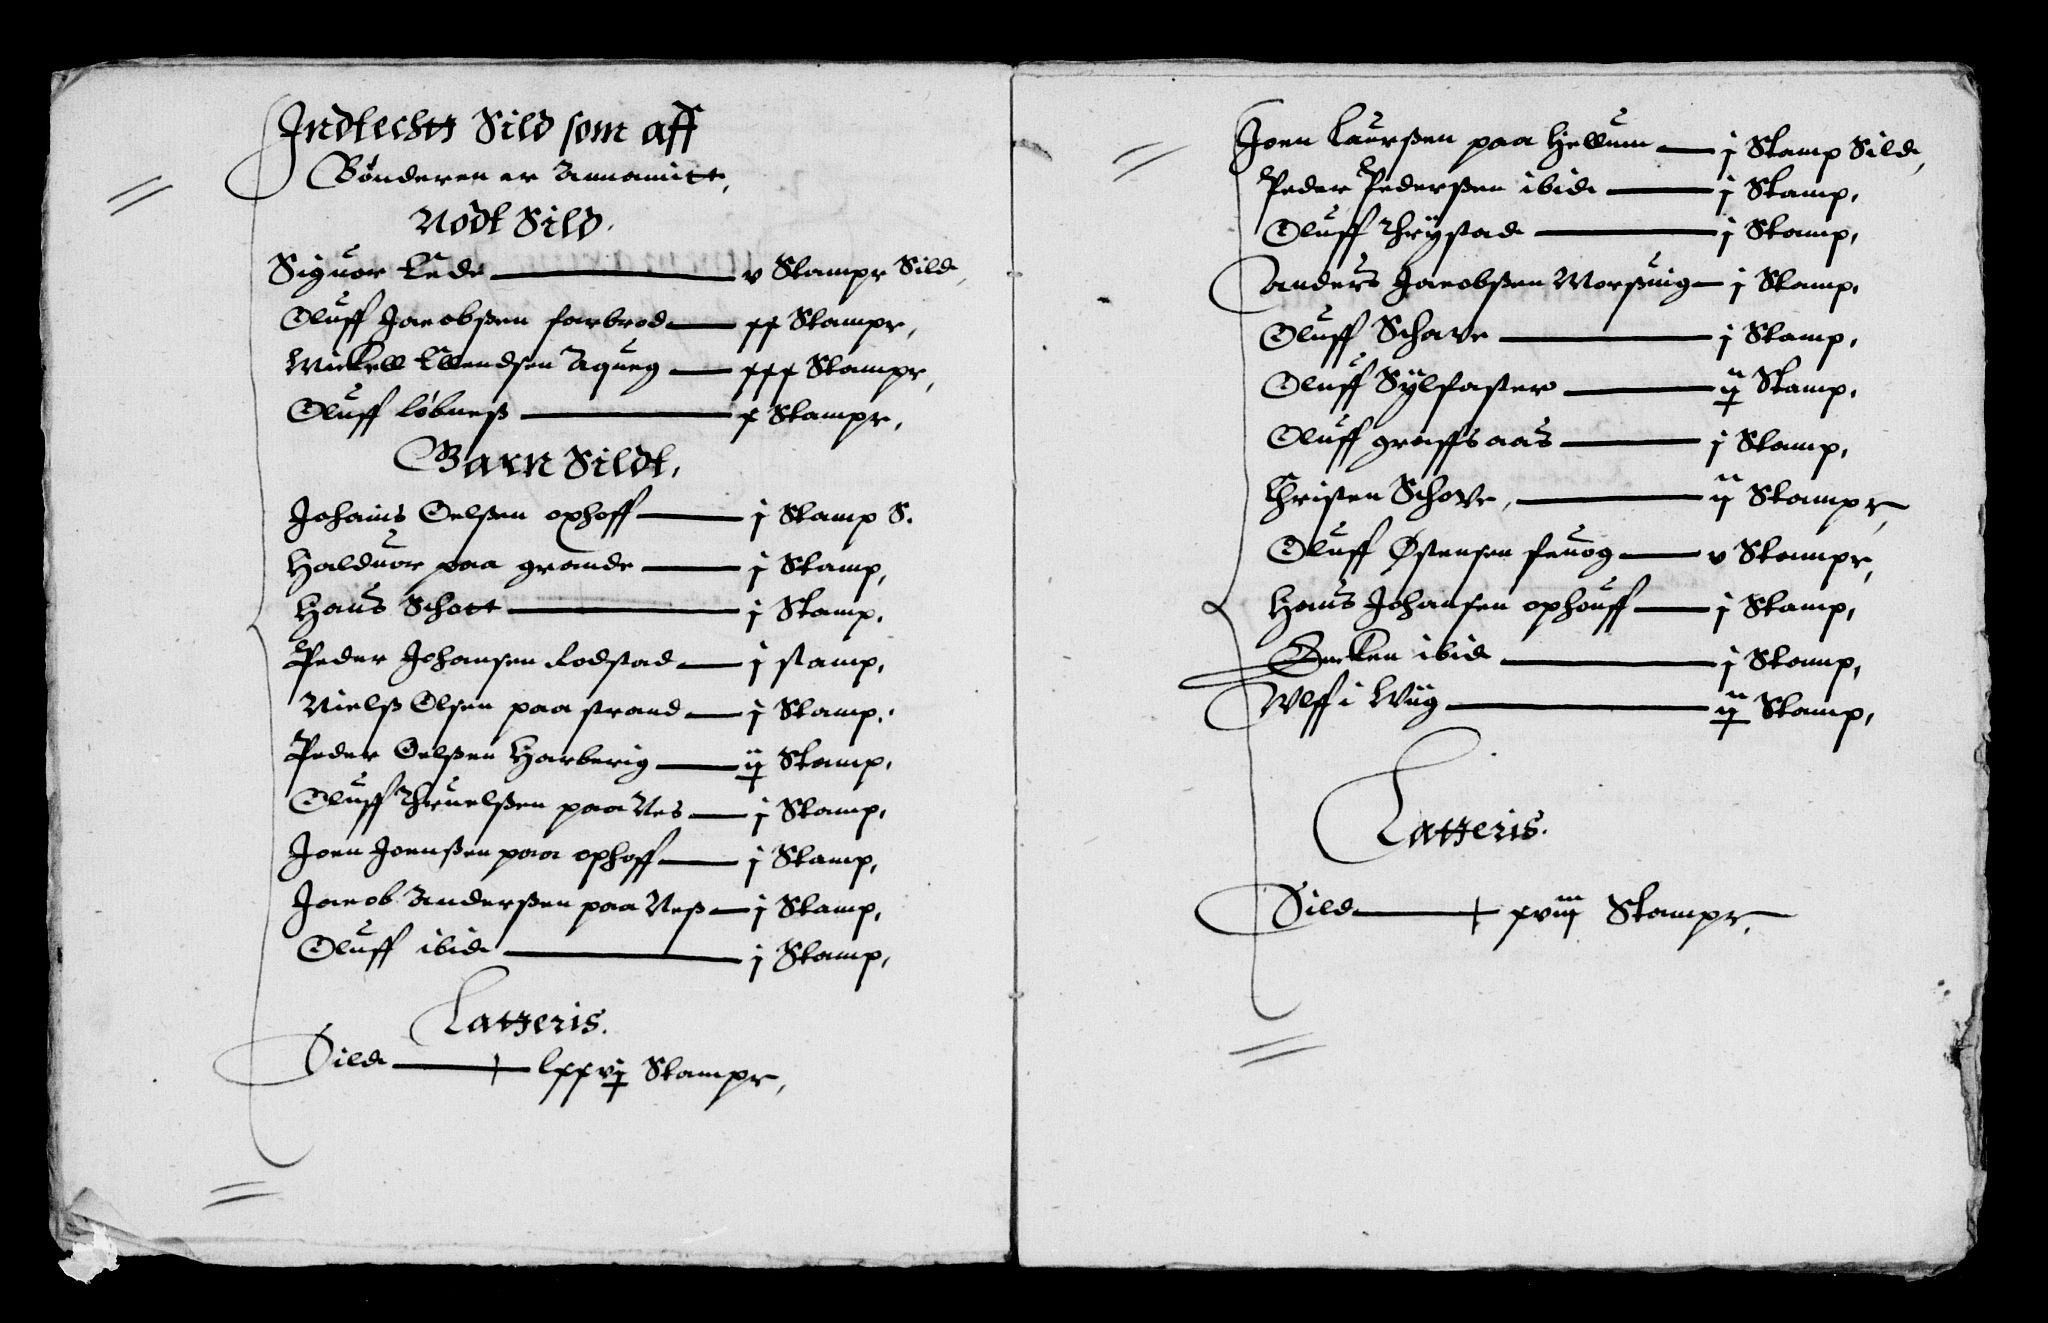 Indtechtt Sild som aff
Bønderen er Annamitt,
Nodt Sild.
Siguor Lede v Stampr Sild,
Oluff Jacobßen farbrod xx Stampr,
Mickell Ellendsen Aqueg xxx Stampr,
Oluff løbneß x Stampr,
Garn Sildt,
Johans Oelßen ophoff j Stamp S.
Halduor paa grande j Stamp,
Hans Schott j Stamp,
Peder Johansen Rodstad j stamp,
Nielß Olsen paa strand j Stamp,
Peder Oelßen Harberig ij Stamp,
Oluff Thruelßen paa Nes j Stamp,
Joen Joenßen paa ophoff j Stamp,
Jacob Anderßen paa Neß j Stamp,
Oluff ibid j Stamp,
Latteris.
Sild lxxvj Stampr,
Joen Laurßen paa Hellum j Stamp Sild,
Peder Pederßen ibid j Stamp,
Oluff Thrÿstad j Stamp,
Anders Jacobßen Morßuig j Stamp,
Oluff Schave j Stamp,
Oluff Sÿlfaster ij Stamp,
Oluff greffsaas j Stamp,
Christen Schove, ij Stampr,
Oluff Østensen feuog v Stampr,
Hans Johansen ophouff j Stamp,
Encken ibid j Stamp,
Wlff i Wiig ij Stamp,
Latteris.
Sild xviij Stampr,